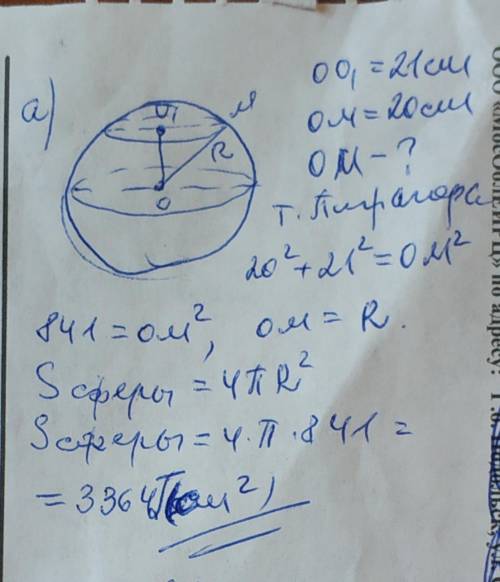 а)
O₁ M
R
O
OO₁ = 21см
OM = 20см
OM - ?
т. Пифагора
20² + 21² = OM²
841 = OM², OM = R.
Sсферы = 4πR²
Sсферы = 4·π·841 =
= 3364π(см²)